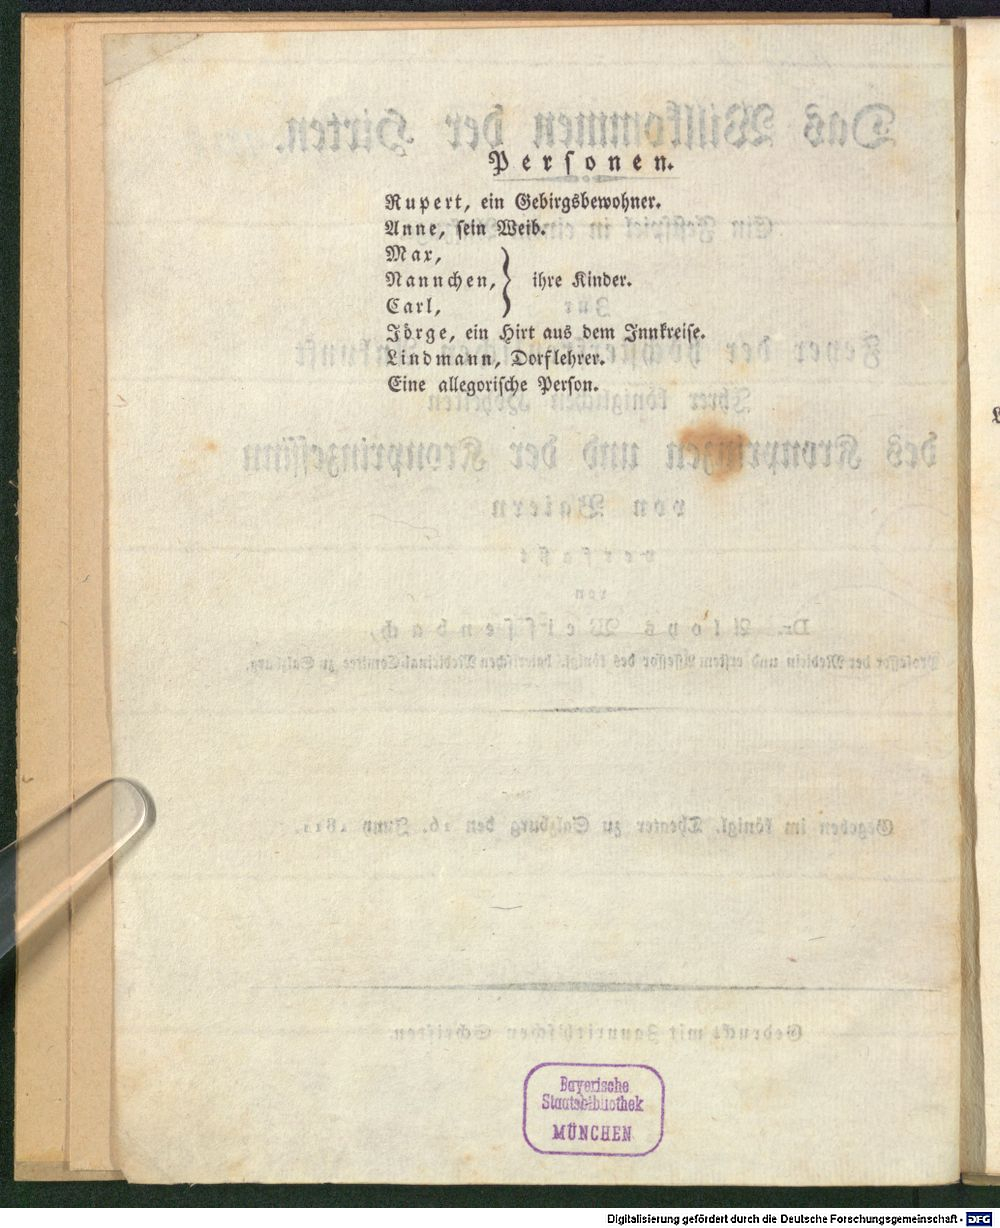 Personen.
Rupert, ein Gebirgsbewohner.
Anne, sein Weib.
Max,
Nannchen, } ihre Kinder.
Carl,
Jörge, ein Hirt aus dem Innkreise.
Lindmann, Dorflehrer.
Eine allegorische Person.
Bayerische
Staatsbibliothek
MÜNCHEN
Digitalisierung gefördert durch die Deutsche Forschungsgemeinschaft - DFG